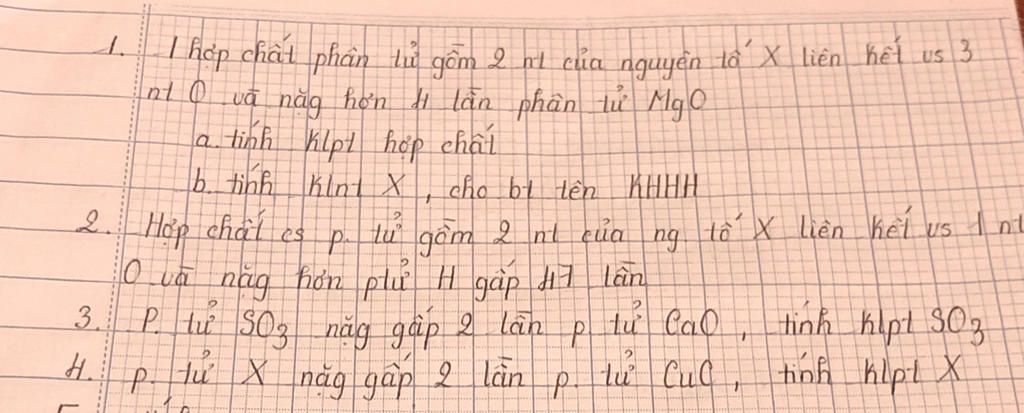 1. 1 hợp chất phân tử gồm 2 nt của nguyên tố X liên kết vs 3
nt O và nặg hơn 4 lần phân tử MgO
a. tính Klpt hợp chất
b. tính Klnt X, cho bt tên KHHH
2. Hợp chất cs p. tử gồm 2 nt của ng tố X liên kết vs 1 nt
O và nặg hơn ptử H gấp 47 lần
3. P. tử SO3 nặg gấp 2 lần p. tử CaO, tính klpt SO3
4. p. tử X nặg gấp 2 lần p. tử CuO, tính klpt X